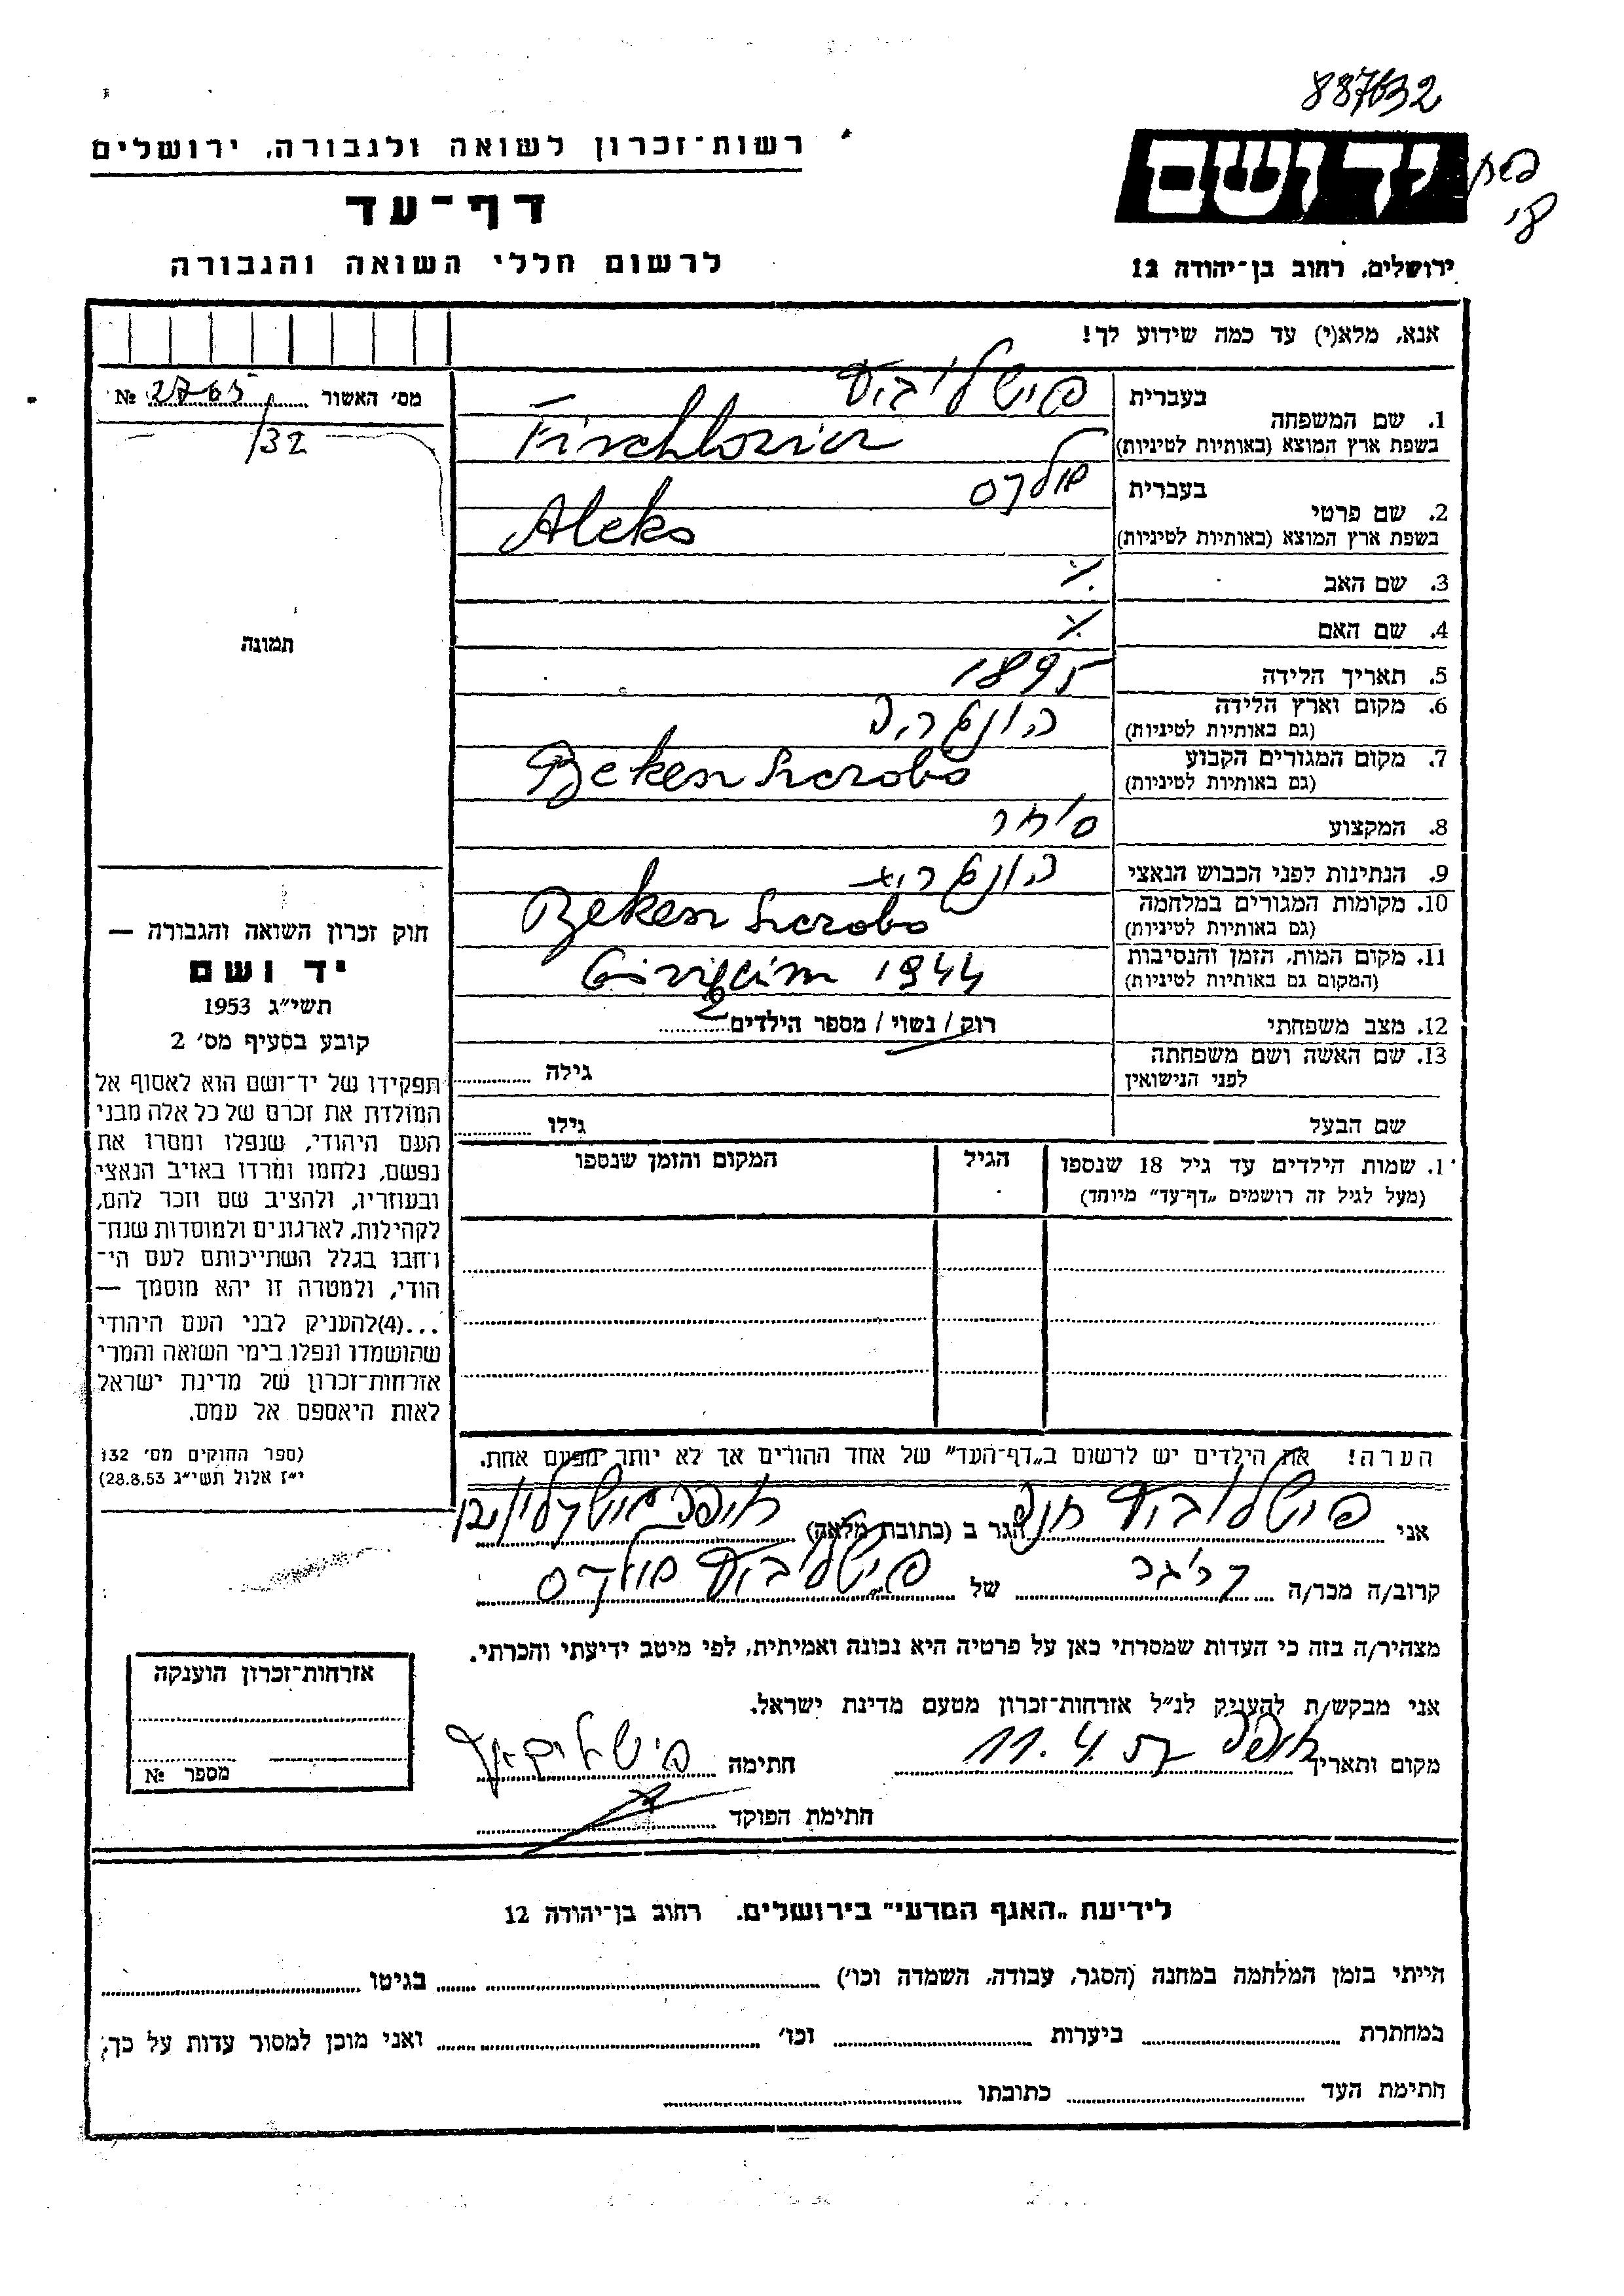 887632
רשות־זכרון לשואה ולגבורה, ירושלים
יד ושם
דף־עד
לרשום חללי השואה והגבורה
ירושלים, רחוב בן־יהודה 12
אנא, מלא(י) עד כמה שידוע לך!
מס׳ האשור 2765 №
/32
תמונה
1. שם המשפחה
בעברית
בשפת ארץ המוצא (באותיות לטיניות)
2. שם פרטי
בעברית
בשפת ארץ המוצא (באותיות לטיניות) Aleks
3. שם האב
4. שם האם
5. תאריך הלידה 1895
6. מקום וארץ הלידה הונגריה
(גם באותיות לטיניות)
7. מקום המגורים הקבוע
(גם באותיות לטיניות)
8. המקצוע סוחר
9. הנתינות לפני הכבוש הנאצי הונגרית
10. מקומות המגורים במלחמה
(גם באותיות לטיניות)
11. מקום המות, הזמן והנסיבות 1944
(המקום גם באותיות לטיניות)
12. מצב משפחתי רוק / נשוי / מספר הילדים 2
13. שם האשה ושם משפחתה
לפני הנישואין
גילה
שם הבעל גילו
1. שמות הילדים עד גיל 18 שנספו הגיל המקום והזמן שנספו
(מעל לגיל זה רושמים „דף־עד״ מיוחד)
חוק זכרון השואה והגבורה —
יד ושם
תשי״ג 1953
קובע בסעיף מס׳ 2
תפקידו של יד־ושם הוא לאסוף אל
המולדת את זכרם של כל אלה מבני
העם היהודי, שנפלו ומסרו את
נפשם, נלחמו ומרדו באויב הנאצי
ובעוזריו, ולהציב שם וזכר להם,
לקהילות, לארגונים ולמוסדות שנח־
רחבו בגלל השתייכותם לעם הי־
הודי, ולמטרה זו יהא מוסמך —
...(4)להעניק לבני העם היהודי
שהושמדו ונפלו בימי השואה והמרי
אזרחות־זכרון של מדינת ישראל
לאות היאספם אל עמם.
(ספר החוקים מס׳ 132
י״ז אלול תשי״ג 28.8.53)
הערה! את הילדים יש לרשום ב„דף־העד״ של אחד ההורים אך לא יותר מפעם אחת.
אני הגר ב (כתובת מלאה) חיפה
קרוב/ה מכר/ה של
מצהיר/ה בזה כי העדות שמסרתי כאן על פרטיה היא נכונה ואמיתית, לפי מיטב ידיעתי והכרתי.
אני מבקש/ת להעניק לנ״ל אזרחות־זכרון מטעם מדינת ישראל.
מקום ותאריך חיפה 11.4. חתימה
חתימת הפוקד
אזרחות־זכרון הוענקה
מספר №
לידיעת „האגף המדעי״ בירושלים. רחוב בן־יהודה 12
הייתי בזמן המלחמה במחנה (הסגר, עבודה, השמדה וכו׳) בגיטו
במחתרת ביערות וכו׳ ואני מוכן למסור עדות על כך,
חתימת העד כתובתו